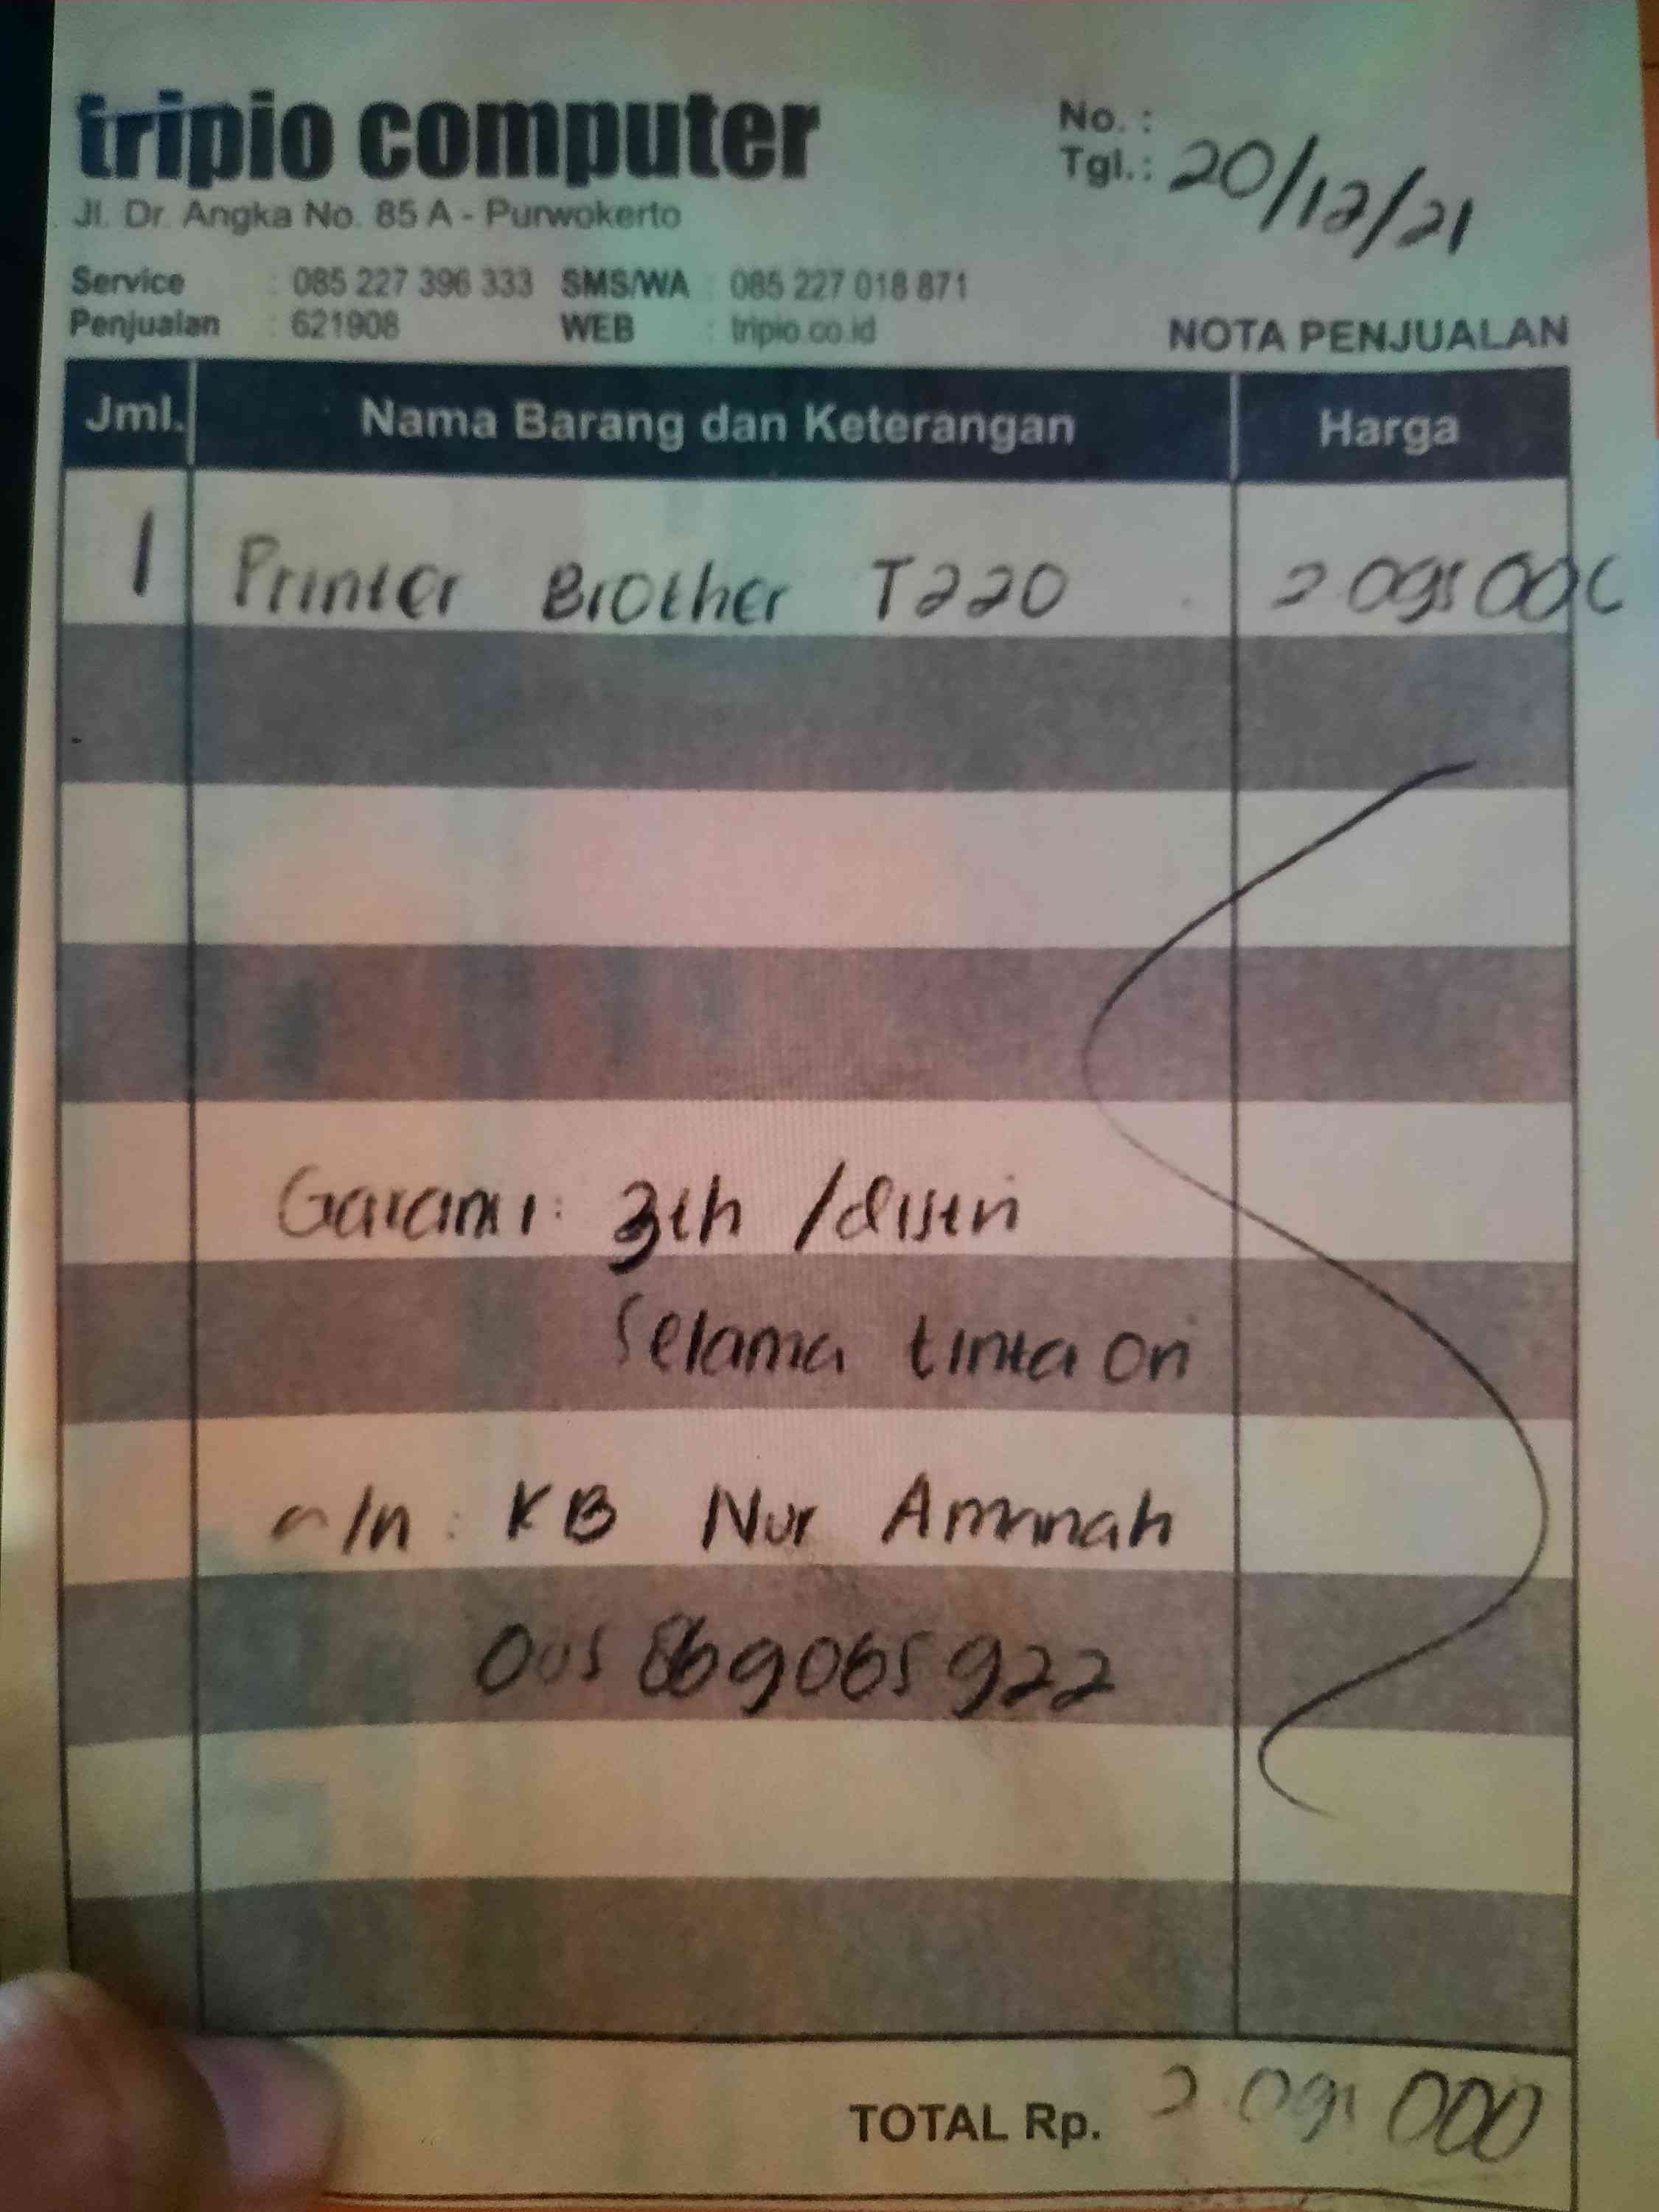 tripio computer
Jl. Dr. Angka No. 85 A - Purwokerto
No. :
Tgl. : 20/12/21
Service : 085 227 396 333 SMS/WA : 085 227 018 871
Penjualan : 621908 WEB : tripio.co.id
NOTA PENJUALAN
Jml. Nama Barang dan Keterangan Harga
1 Printer Brother T220 2 095 000
Garansi : 3th /distri
Selama tinta Ori
a/n : KB Nur Aminah
869065922
TOTAL Rp. 2 095 000